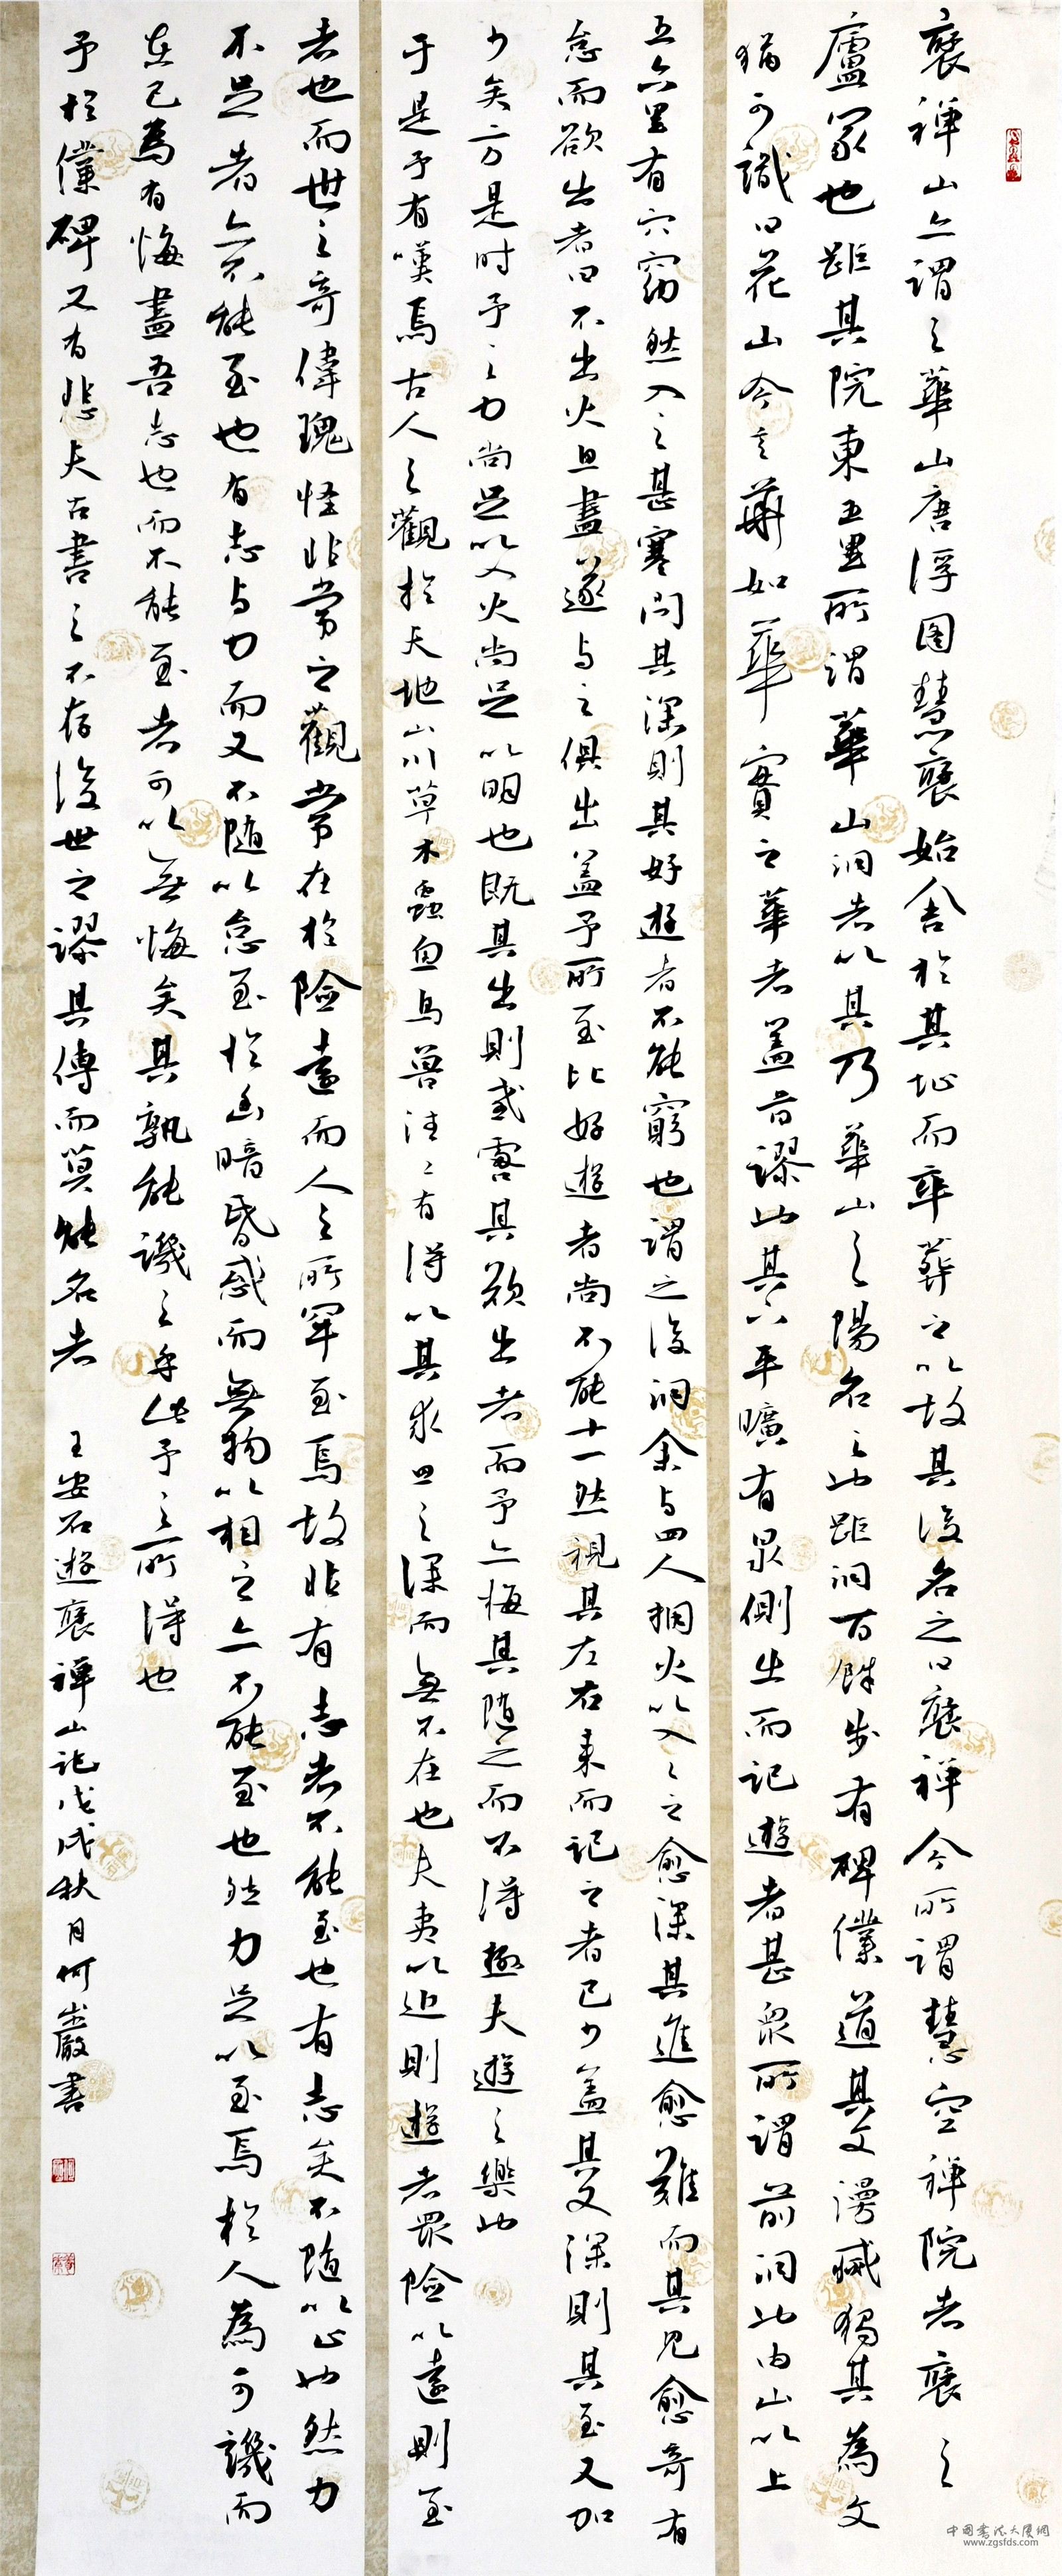 褒禪山亦謂之華山唐浮圖慧褒始舍於其址而卒葬之以故其後名之曰褒禪今所謂慧空禪院者褒之
廬冢也距其院東五里所謂華山洞者以其乃華山之陽名之也距洞百餘步有碑僕道其文漫滅獨其為文
猶可識曰花山今言華如華實之華者蓋音謬也其下平曠有泉側出而記遊者甚眾所謂前洞也由山以上
五六里有穴窈然入之甚寒問其深則其好遊者不能窮也謂之後洞余與四人擁火以入入之愈深其進愈難而其見愈奇有
怠而欲出者曰不出火且盡遂與之俱出蓋予所至比好遊者尚不能十一然視其左右來而記之者已少蓋其又深則其至又加
少矣方是時予之力尚足以入火尚足以明也既其出則或咎其欲出者而予亦悔其隨之而不得極夫遊之樂也
于是予有嘆焉古人之觀於天地山川草木蟲魚鳥獸往往有得以其求思之深而無不在也夫夷以近則遊者眾險以遠則至
者也而世之奇偉瑰怪非常之觀常在於險遠而人之所罕至焉故非有志者不能至也有志矣不隨以止也然力
不足者亦不能至也有志與力而又不隨以怠至於幽暗昏惑而無物以相之亦不能至也然力足以至焉於人為可譏而
在己為有悔盡吾志也而不能至者可以無悔矣其孰能譏之乎此予之所得也
予於僕碑又有悲夫古書之不存後世之謬其傳而莫能名者 王安石遊褒禪山記戊戌秋月何岩嚴書
中國書法大廈網
www.zgsfds.com